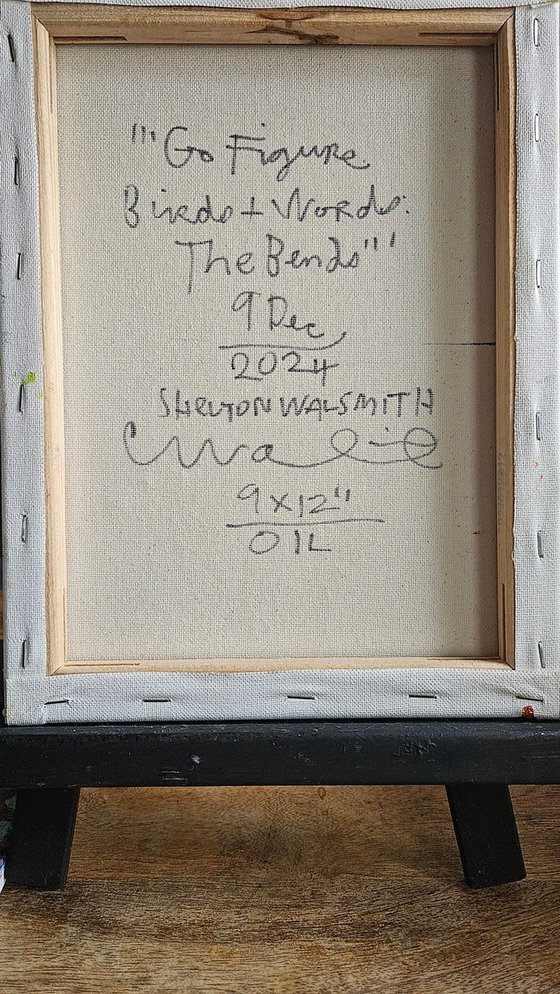 "'Go Figure
Birds + Words:
The Bends"'
9 Dec
2024
SHELTON WALSMITH
9 x 12"
OIL